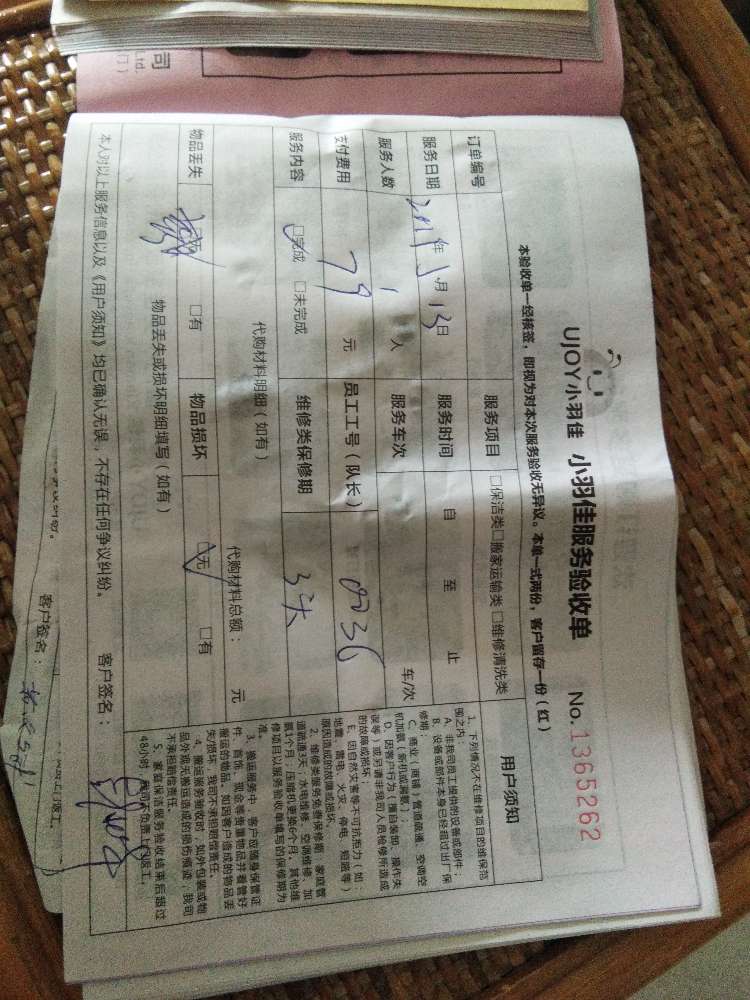 UJOY小羽佳 小羽佳服务验收单 No.1365262
本验收单一经核签，即视为对本次服务验收无异议。本单一式两份，客户留存一份（红）
订单编号 服务项目 □保洁类□搬家运输类□维修清洗类
服务日期 年 月 13日 服务时间 自 至 止
服务人数 1 人 服务车次 车/次
支付费用 79 元 员工工号（队长） 0736
服务内容 □完成 □未完成 维修类保修期 3天
代购材料明细（如有） 代购材料总额： 元
物品丢失 □无 □有 物品损坏 □无 □有
物品丢失或损坏明细填写（如有）
本人对以上服务信息以及《用户须知》均已确认无误，不存在任何争议纠纷。 客户签名：
用户须知
1、下列情况不在维修项目的维保范
围之内：
A、非我司员工提供的设备或部件；
B、设备或部件本身已经超过出厂保
修期；
C、商业（商铺）管道疏通、空调空
机加氨（新机或漏氨）
D、因客户行为（擅自装卸、操作失
误等）或另请非我司人员检修所造成
的故障或损坏
E、因自然灾害等不可抗拒力（如：
地震、雷电、火灾、停电、短路等）
原因造成的故障或损坏。
2、维修类服务免费保修期：家庭管
道疏通5天；水电维修、空调维修、加
氨1个月；压缩机更换6个月。其他维
修项目以服务验收单填写的保修期为
准。
3、搬运服务中，客户应随身保管证
件、首饰、现金等贵重物品并看管好
搬运的物品，如因客户造成的物品丢
失/损坏，我司不承担赔偿责任。
4、搬运服务验收时，如外包装或物
品外观无搬运造成的损伤痕迹，我司
不承担赔偿责任。
5、家庭保洁服务验收结束后超过
48小时，我司不负责上门返工。
客户签名：
司
Ltd.